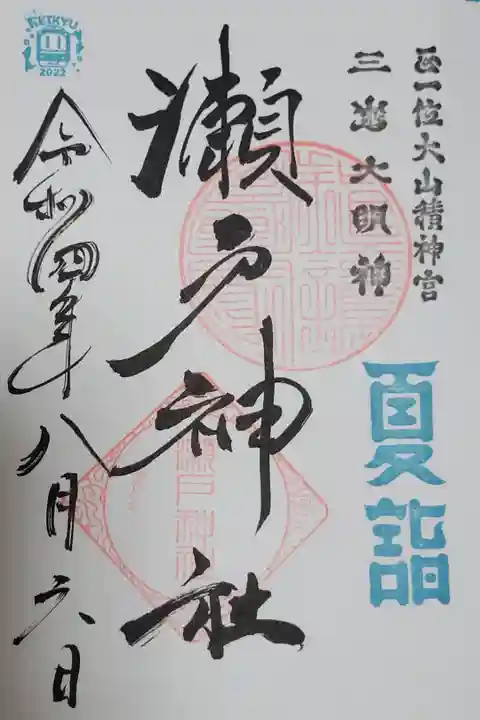 正一位大山積神宮
三島大明神
夏詣
瀬戸神社
令和四年八月六日
KEIKYU
2022
瀬戸神社